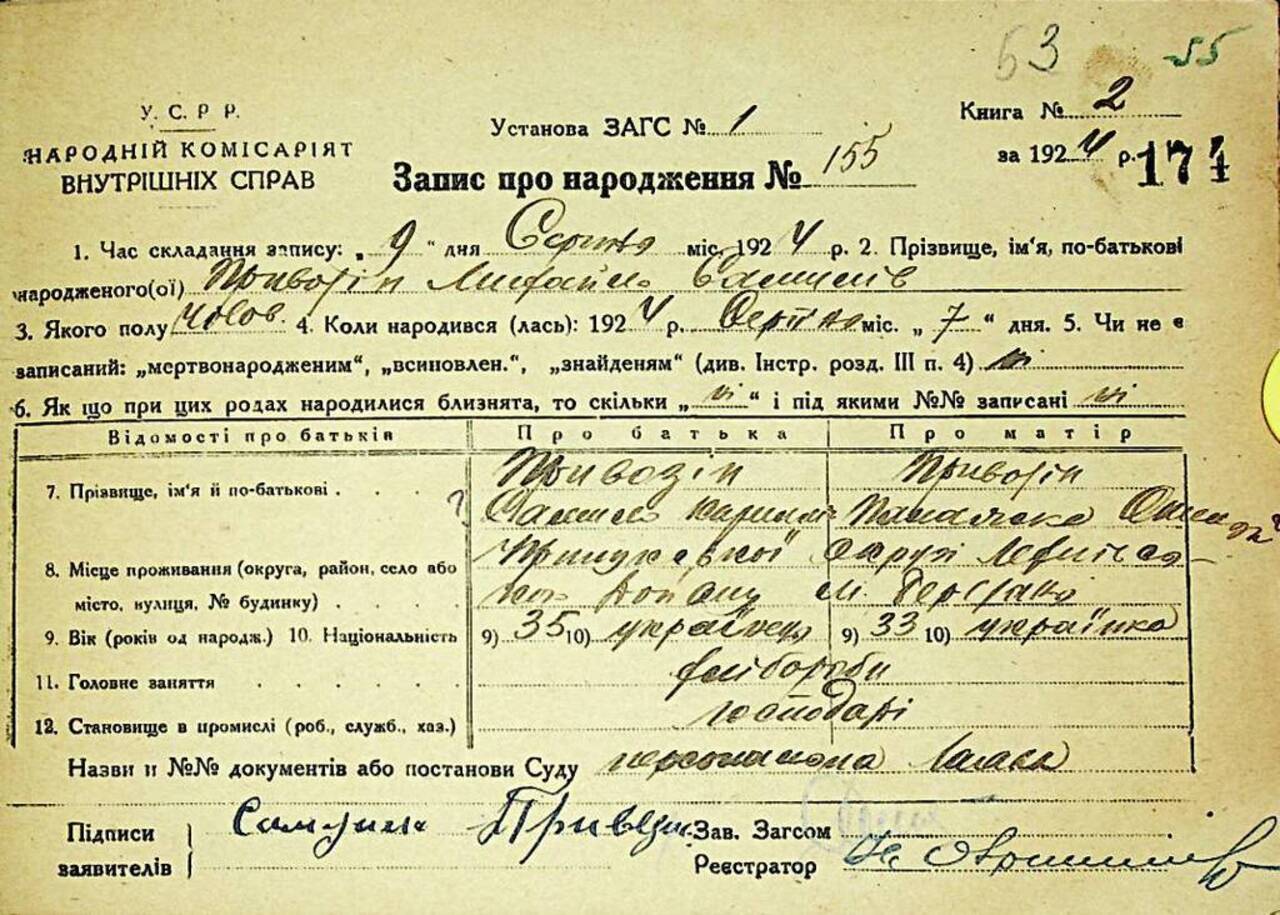 63 55
У. С. Р Р.
НАРОДНІЙ КОМІСАРІЯТ
ВНУТРІШНІХ СПРАВ
Установа ЗАГС № 1
Запис про народження № 155
Книга № 2
за 1924 р. 174
1. Час складання запису: „ 9 " дня Серпня міс. 1924 р. 2. Прізвище, ім'я, по-батькові
народженого(ої) Привозін Михайло
3. Якого полу Чолов. 4. Коли народився (лась): 1924 р. Серпня міс. „ 7 " дня. 5. Чи не є
записаний: „мертвонародженим", „всиновлен.", „знайденям" (див. Інстр. розд. III п. 4) ні
6. Як що при цих родах народилися близнята, то скільки „ ні " і під якими №№ записані ні
Відомості про батьків Про батька Про матір
7. Прізвище, ім'я й по-батькові . . . . ? Привозін Привозін
8. Місце проживання (округа, район, село або Прилуцької Округи
місто, вулиця, № будинку) . . . .
9. Вік (років од народж.) 10. Національність 9) 35 10) українець 9) 33 10) українка
11. Головне заняття . . . . . хлібороби
12. Становище в промислі (роб., служб., хаз.) господарі
Назви и №№ документів або постанови Суду персональна
Підписи заявителів Зав. Загсом
Реєстратор